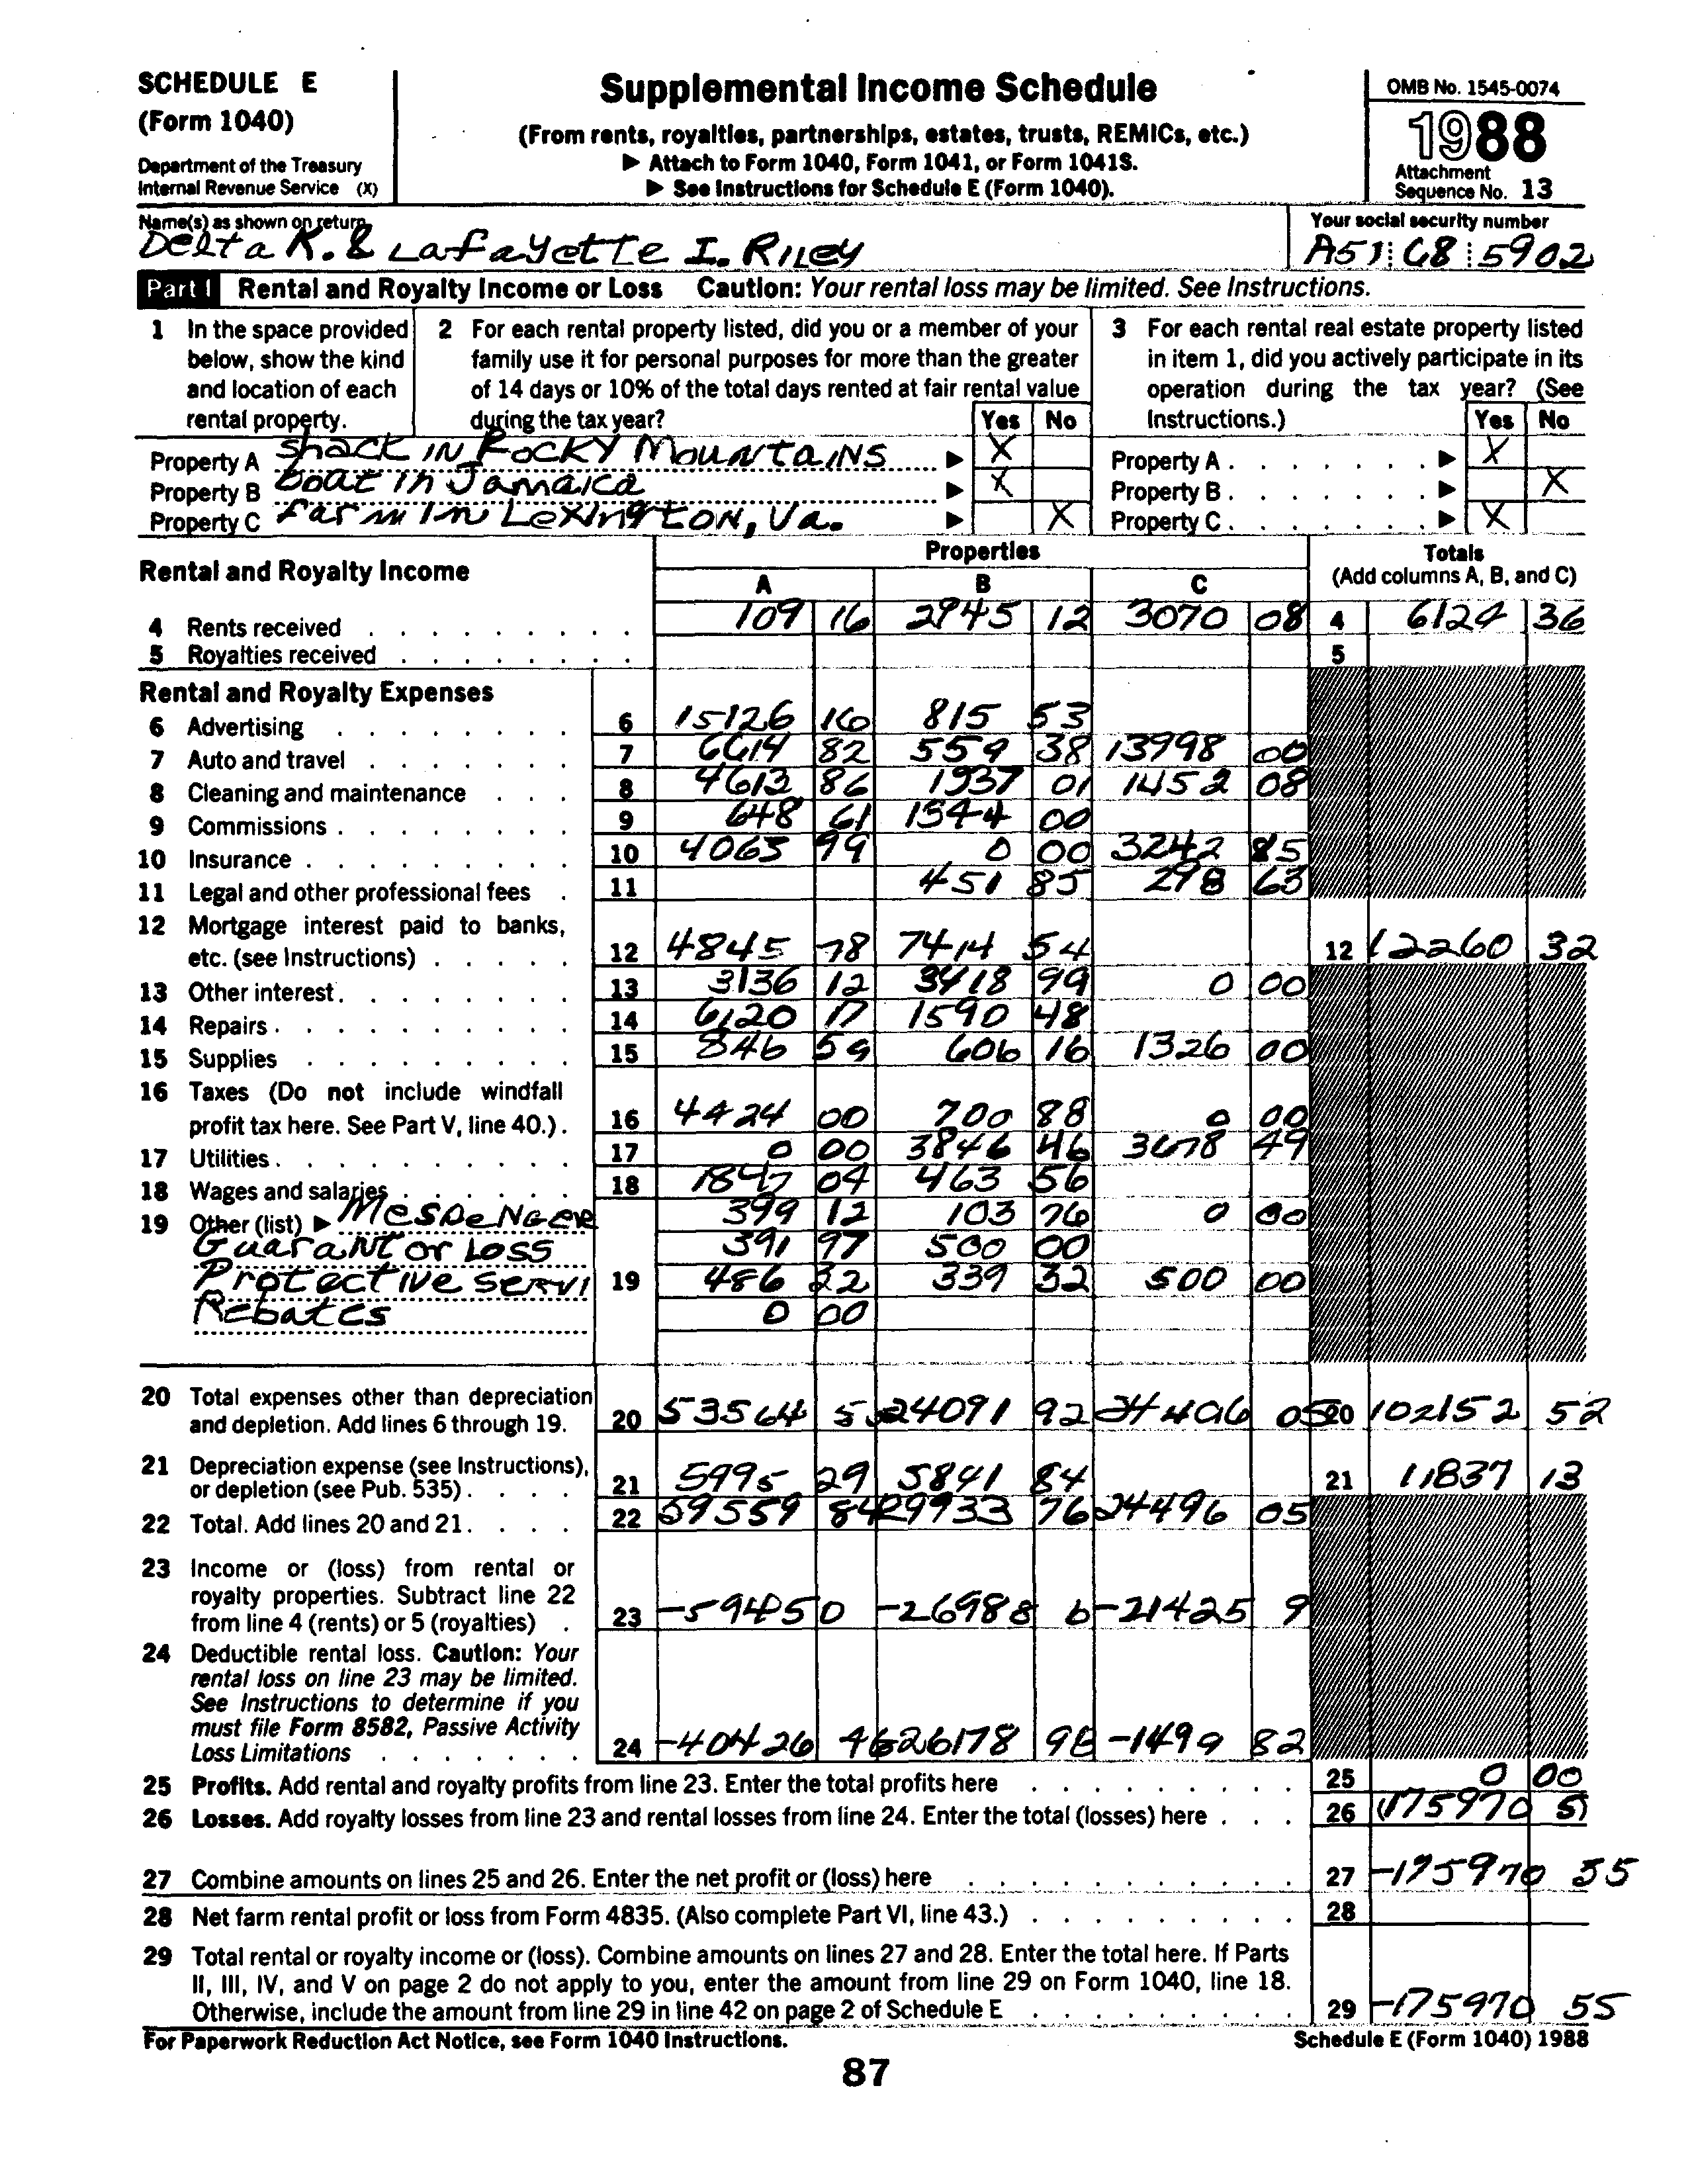 SCHEDULE E
(Form 1040)
Department of the Treasury
Internal Revenue Service (X)
Supplemental Income Schedule
(From rents, royalties, partnerships, estates, trusts, REMICs, etc.)
▶ Attach to Form 1040, Form 1041, or Form 1041S.
▶ See Instructions for Schedule E (Form 1040).
OMB No. 1545-0074
1988
Attachment
Sequence No. 13
Name(s) as shown on return
Delta K. & Lafayette I. Riley
Your social security number
A51 68 5902
Part I Rental and Royalty Income or Loss Caution: Your rental loss may be limited. See Instructions.
1 In the space provided below, show the kind and location of each rental property.
2 For each rental property listed, did you or a member of your family use it for personal purposes for more than the greater of 14 days or 10% of the total days rented at fair rental value during the tax year? Yes No
3 For each rental real estate property listed in item 1, did you actively participate in its operation during the tax year? (See Instructions.) Yes No
Property A Shack in Rocky Mountains ▶ X Property A ▶ X
Property B boat in Jamaica ▶ X Property B ▶ X
Property C farm in Lexington, Va. ▶ X Property C ▶ X
Rental and Royalty Income Properties A B C Totals (Add columns A, B, and C)
4 Rents received 109 16 2945 12 3070 08 4 6124 36
5 Royalties received 5
Rental and Royalty Expenses
6 Advertising 6 15126 16 815 53
7 Auto and travel 7 6614 82 559 38 13998 00
8 Cleaning and maintenance 8 4613 86 1937 01 1452 08
9 Commissions 9 648 61 1544 00
10 Insurance 10 4063 99 0 00 3242 85
11 Legal and other professional fees 11 451 85 298 63
12 Mortgage interest paid to banks, etc. (see Instructions) 12 4845 78 7414 54 12 12260 32
13 Other interest 13 3136 12 3418 99 0 00
14 Repairs 14 6120 17 1590 48
15 Supplies 15 846 59 606 16 1326 00
16 Taxes (Do not include windfall profit tax here. See Part V, line 40.) 16 4424 00 700 88 0 00
17 Utilities 17 0 00 3846 46 3678 49
18 Wages and salaries 18 1847 04 463 56
19 Other (list) ▶ Messenger 399 12 103 76 0 00
Guarantor Loss 391 97 500 00
Protective Servi 19 486 32 339 32 500 00
Rebates 0 00
20 Total expenses other than depreciation and depletion. Add lines 6 through 19. 20 53564 55 24091 92 24496 05 20 102152 52
21 Depreciation expense (see Instructions), or depletion (see Pub. 535) 21 5995 29 5841 84 21 11837 13
22 Total. Add lines 20 and 21 22 59559 84 29933 76 24496 05
23 Income or (loss) from rental or royalty properties. Subtract line 22 from line 4 (rents) or 5 (royalties) 23 -59450 -26988 6 -21425 9
24 Deductible rental loss. Caution: Your rental loss on line 23 may be limited. See Instructions to determine if you must file Form 8582, Passive Activity Loss Limitations 24 -40426 46 26178 98 -1499 82
25 Profits. Add rental and royalty profits from line 23. Enter the total profits here 25 0 00
26 Losses. Add royalty losses from line 23 and rental losses from line 24. Enter the total (losses) here 26 (175970 5)
27 Combine amounts on lines 25 and 26. Enter the net profit or (loss) here 27 -175970 55
28 Net farm rental profit or loss from Form 4835. (Also complete Part VI, line 43.) 28
29 Total rental or royalty income or (loss). Combine amounts on lines 27 and 28. Enter the total here. If Parts II, III, IV, and V on page 2 do not apply to you, enter the amount from line 29 on Form 1040, line 18. Otherwise, include the amount from line 29 in line 42 on page 2 of Schedule E 29 -175970 55
For Paperwork Reduction Act Notice, see Form 1040 Instructions. Schedule E (Form 1040) 1988
87